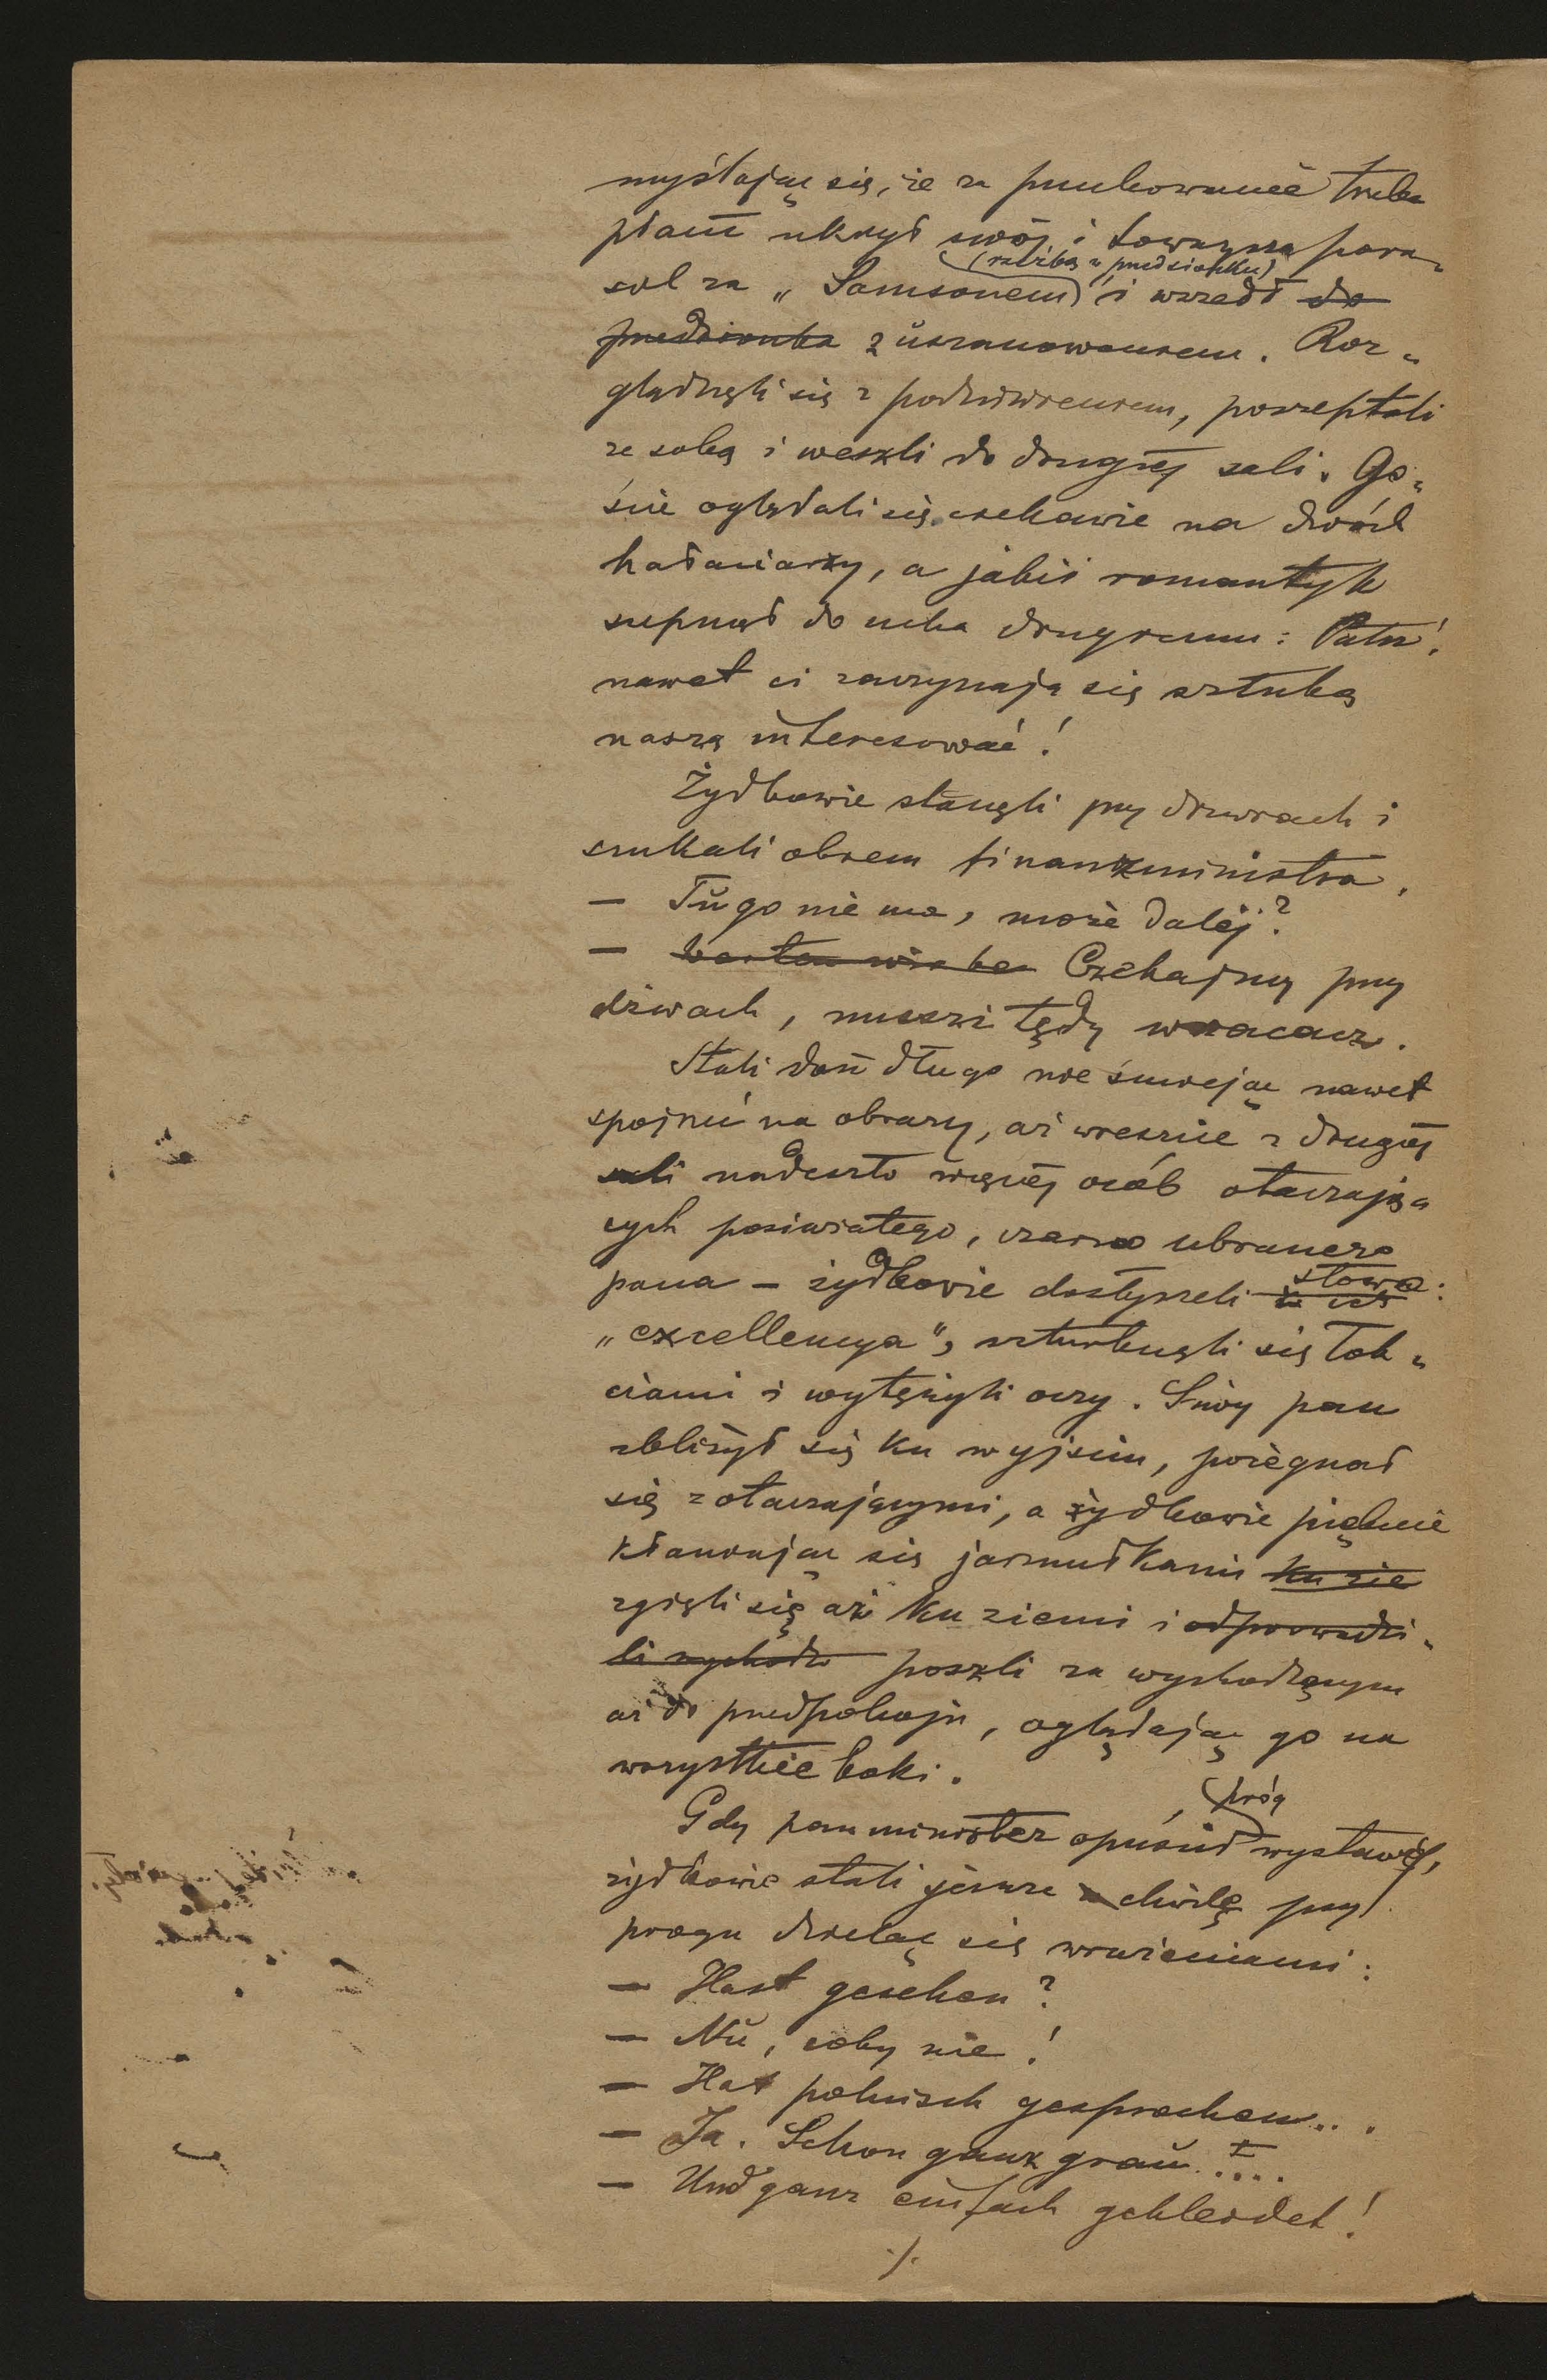 myślając się, że za przechowanie trzeba
płacić ukrył swój i towarzysza para-
sol za „Samsonem (rzeźbą w przedsionku) i wszedł do
przedsionka z uszanowaniem. Roz-
glądnęli się z podziwieniem, poszeptali
ze sobą i weszli do drugiej sali. Go-
ście oglądali się ciekawie na dwóch
hałaciarzy, a jakiś romantyk
szepnął do ucha drugiemu: Patrz!
nawet ci zaczynają się sztuką
naszą interesować!
Żydkowie stanęli przy drzwiach i
szukali okiem finanzministra.
— Tu go nie ma, może dalej?
— Czekajmy przy
drzwiach, musi tędy wracać.
Stali dość długo nie śmiejąc nawet
spojrzeć na obrazy, aż wreszcie z drugiej
sali nadeszło więcej osób otaczają-
cych posiwiałego, czarno ubranego
pana — żydkowie dosłyszeli słowo:
„excellencya", szturknęli się łok-
ciami i wytężyli oczy. Siwy pan
zbliżył się ku wyjściu, pożegnał
się z otaczającymi, a żydkowie pięknie
kłaniając się jarmułkami ku zie
zgięli się aż ku ziemi i odprowadzi-
li wychodz poszli za wychodzącym
aż do przedpokoju, oglądając go na
wszystkie boki.
Gdy pan minister opuścił próg wystawy,
żydkowie stali jeszcze chwilę przy
progu dzieląc się wrażeniami:
— Hast gesehen?
— Nu, coby nie!
— Hat polnisch gesprochen...
— Ja. Schon ganz grau....
— Und ganz einfach gekleidet!
./.